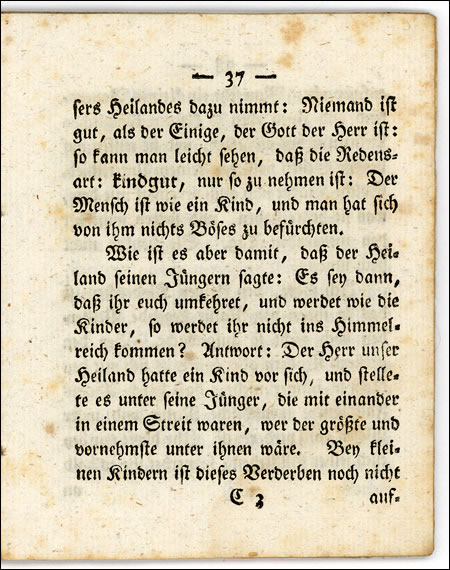 — 37 —
sers Heilandes dazu nimmt: Niemand ist
gut, als der Einige, der Gott der Herr ist:
so kann man leicht sehen, daß die Redens-
art: kindgut, nur so zu nehmen ist: Der
Mensch ist wie ein Kind, und man hat sich
von ihm nichts Böses zu befürchten.
Wie ist es aber damit, daß der Hei-
land seinen Jüngern sagte: Es sey dann,
daß ihr euch umkehret, und werdet wie die
Kinder, so werdet ihr nicht ins Himmel-
reich kommen? Antwort: Der Herr unser
Heiland hatte ein Kind vor sich, und stelle-
te es unter seine Jünger, die mit einander
in einem Streit waren, wer der größte und
vornehmste unter ihnen wäre. Bey klei-
nen Kindern ist dieses Verderben noch nicht
C 3 auf-